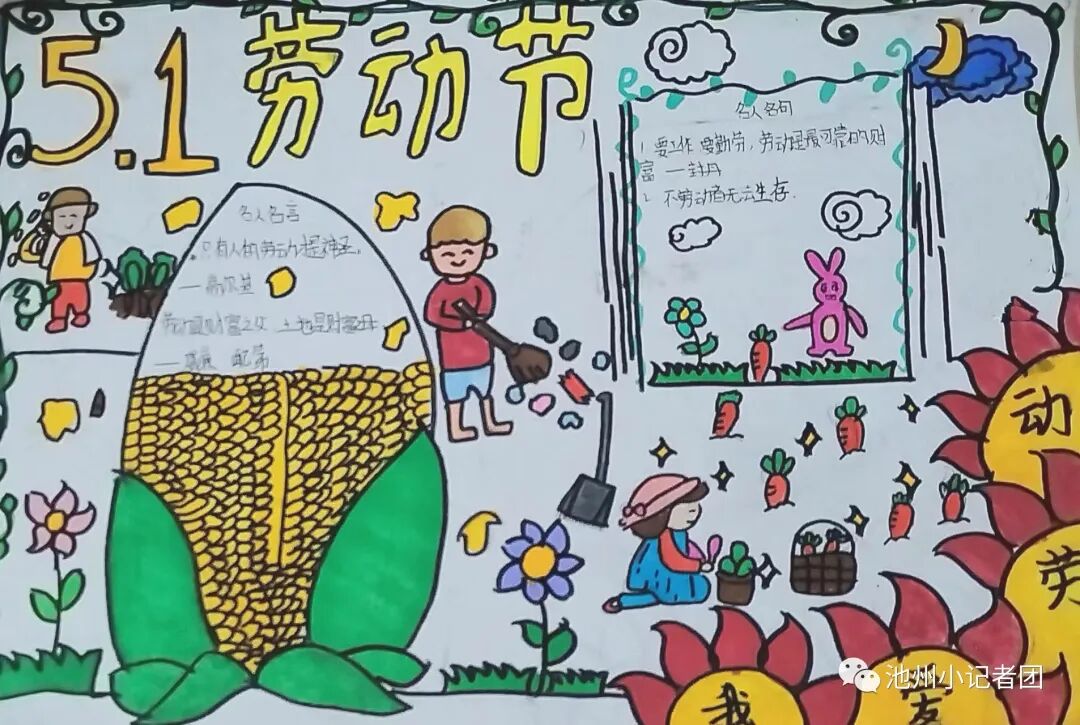 5.1劳动节
名人名句
1 要工作 要勤劳，劳动是最可靠的财
富 —封丹
2 不劳动者无云生存.
名人名言
只有人的劳动才是神圣。
—高尔基
劳动是财富之父 土地是财富母
— 配第
动
劳
我
友
池州小记者团